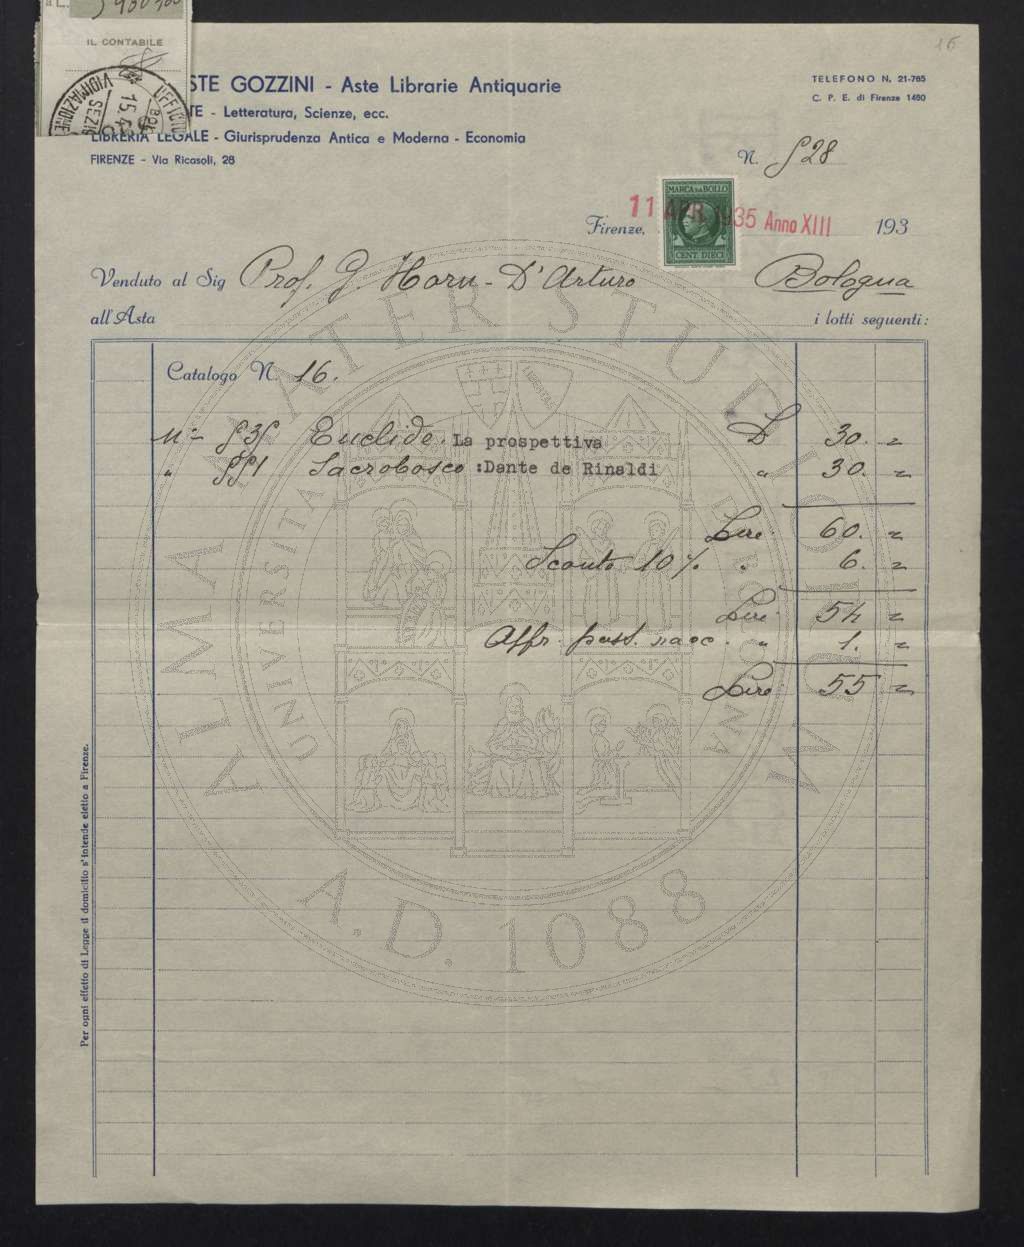 IL CONTABILE
15.4
VIDIMAZIONE
STE GOZZINI - Aste Librarie Antiquarie
TE - Letteratura, Scienze, ecc.
LIBRERIA LEGALE - Giurisprudenza Antica e Moderna - Economia
FIRENZE - Via Ricasoli, 28
TELEFONO N. 21-765
C. P. E. di Firenze 1460
16
N. 528
MARCA DA BOLLO
CENT. DIECI
Firenze, 11 APR. 1935 Anno XIII 193
Venduto al Sig Prof. G. Horn - D'Arturo Bologna
all'Asta i lotti seguenti:
Catalogo N. 16.
N° 535 Euclide. La prospettiva L 30. =
" 551 Sacrobosco : Dante de Rinaldi " 30. =
Lire 60. =
Sconto 10% " 6. =
Lire 54 =
Affr. post. racc. " 1. =
Lire 55 =
Per ogni effetto di Legge il domicilio s'intende eletto a Firenze.
ALMA MATER STUDIORUM
UNIVERSITA DI BOLOGNA
A.D. 1088